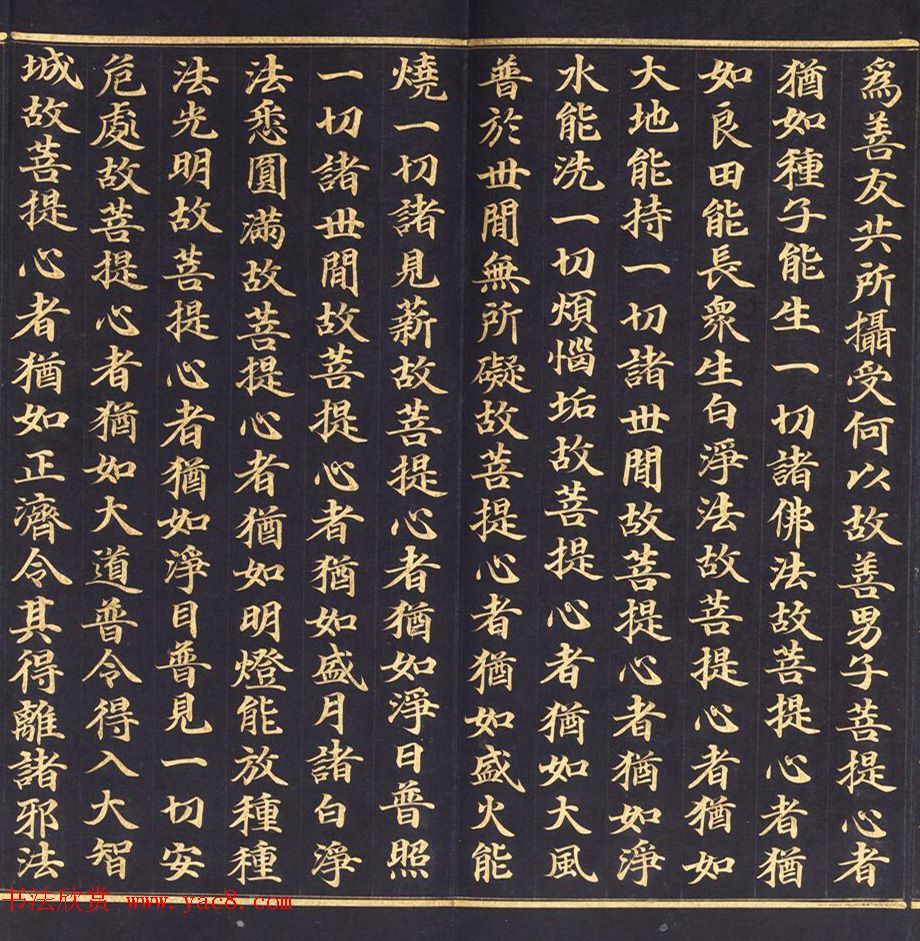 爲善友共所攝受何以故善男子菩提心者
猶如種子能生一切諸佛法故菩提心者猶
如良田能長衆生白淨法故菩提心者猶如
大地能持一切諸世閒故菩提心者猶如淨
水能洗一切煩惱垢故菩提心者猶如大風
普於世閒無所礙故菩提心者猶如盛火能
燒一切諸見薪故菩提心者猶如淨日普照
一切諸世閒故菩提心者猶如盛月諸白淨
法悉圓滿故菩提心者猶如明燈能放種種
法光明故菩提心者猶如淨目普見一切安
危處故菩提心者猶如大道普令得入大智
城故菩提心者猶如正濟令其得離諸邪法
书法欣赏 www.yac8.com